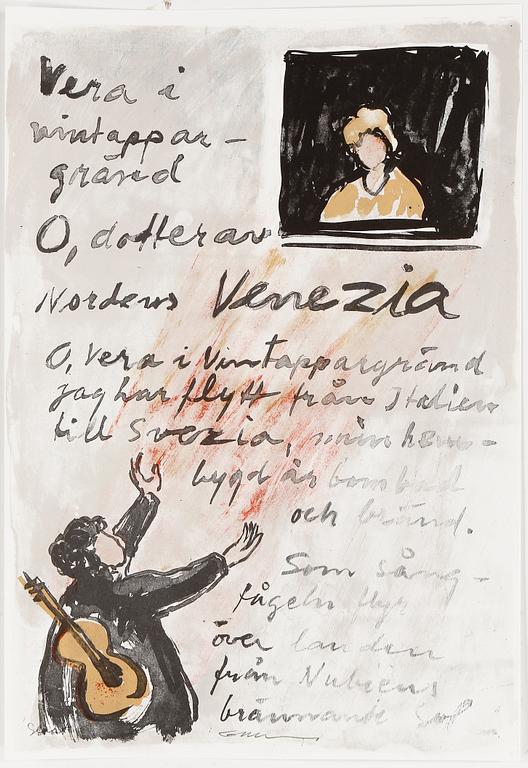 Vera i
vintappar-
gränd
O, dotter av
Nordens Venezia
O, Vera i Vintappargränd
jag har flytt från Italien
till Svezia, min hem-
bygd är bombad
och bränd.
Som sång-
fågeln flyr
över landen
från Nubiens
brännande